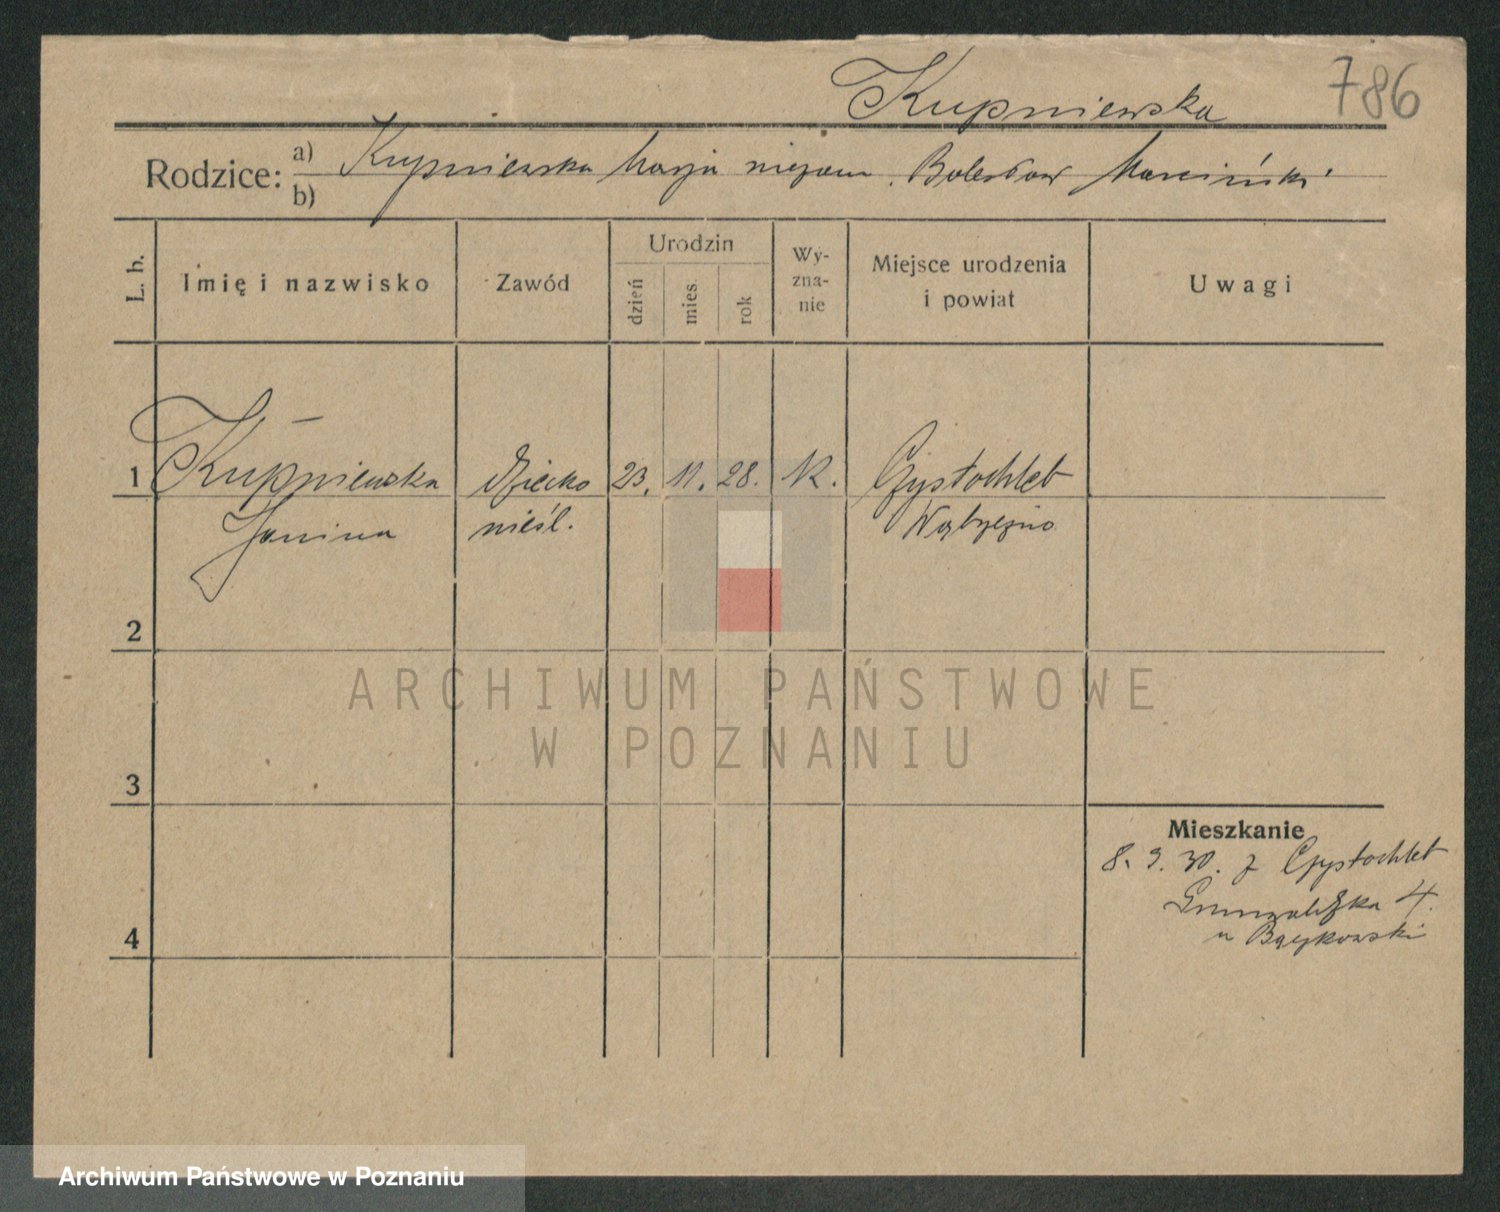 Kupniewska 786
Rodzice: a) Kupniewska Marja niezam. Bolesław Marciński
b)
L. b. Imię i nazwisko Zawód Urodzin dzień mies. rok Wy-zna-nie Miejsce urodzenia i powiat Uwagi
1 Kupniewska Dziecko 23. 11. 28. K. Czystochleb
Janina nieśl. Wąbrzeźno
2
ARCHIWUM PAŃSTWOWE
W POZNANIU
3
Mieszkanie
8. 9. 30. z Czystochleb
4.
u
4
Archiwum Państwowe w Poznaniu